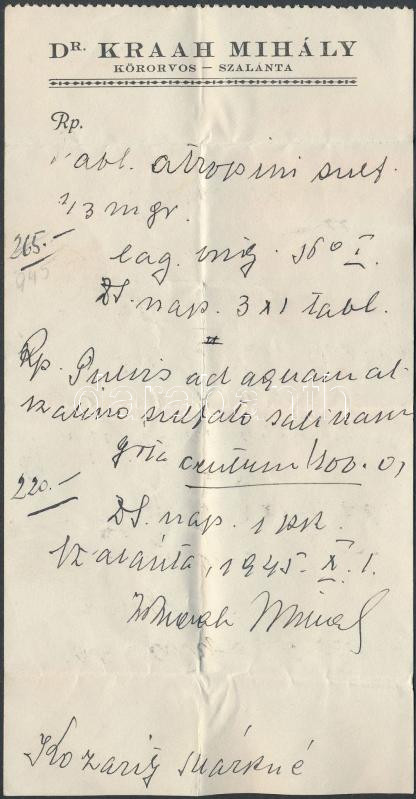 DR. KRAAH MIHÁLY
KÖRORVOS – SZALÁNTA
Rp.
Tabl. atropini sulf.
1/3 mgr.
265.–
lag. orig. No I.
DS. nap. 3x1 tabl.
Rp. Pulvis ad aquam al-
kalino sulfato salinam
gta centum /100.0/
220.–
DS. nap. 1 kk.
Szalánta, 1945. X. 1.
Dr Kraah Mihály
Kozarig Márkné